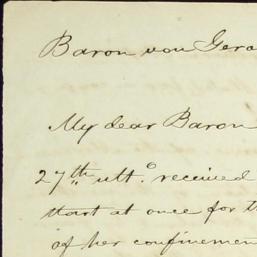 Baron von Gero
My dear Baron
27th ulto. received
start at once for t
of her confinemen